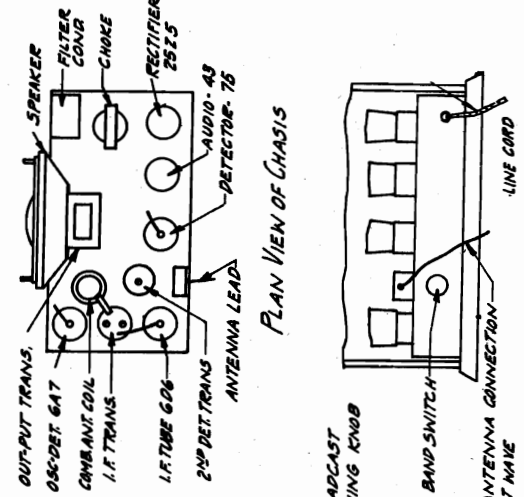 OUT-PUT TRANS.
OSC-DET. 6A7
COMB. ANT. COIL
I.F. TRANS.
I.F. TUBE 6D6
2ND DET. TRANS
ANTENNA LEAD
SPEAKER
FILTER
COND.
CHOKE
RECTIFIER
25Z5
AUDIO-43
DETECTOR-75
PLAN VIEW OF CHASIS
ADCAST
ING KNOB
BAND SWITCH
ANTENNA CONNECTION
T WAVE
LINE CORD